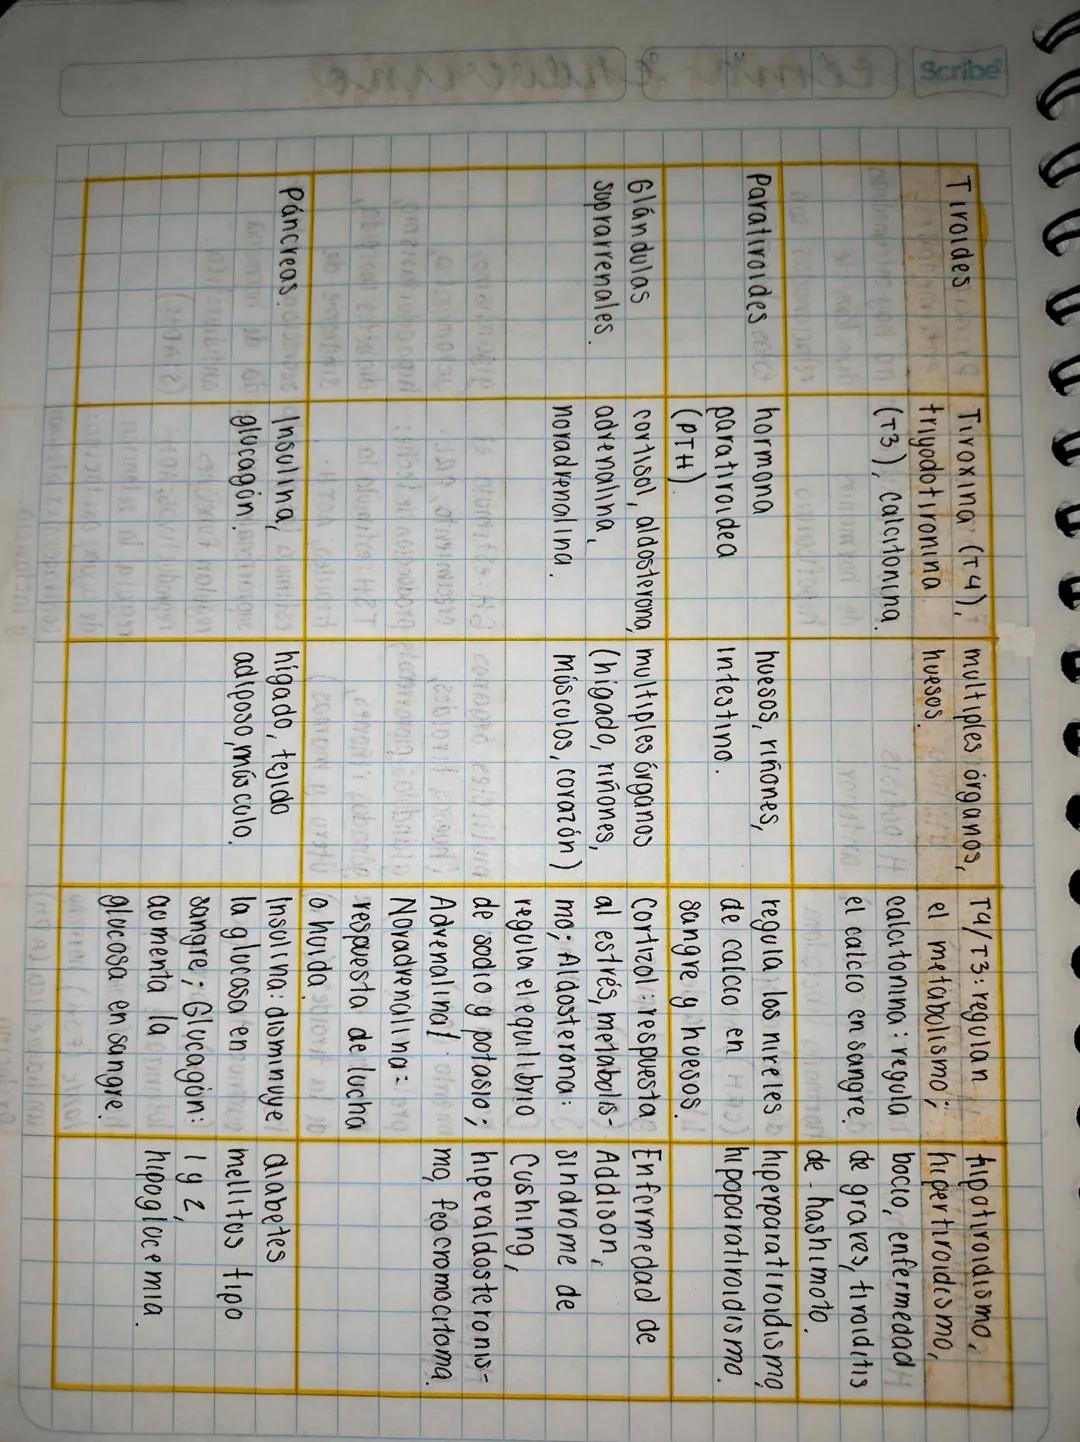 Scribe
Tiroides
Tiroxina (T4),
triyodotironina
(T3), calcitonina.
multiples órganos,
huesos.
T4/T3: regulan
el metabolismo;
calcitonina: regula
el calcio en sangre.
hipotiroidismo,
hipertiroidismo,
bocio, enfermedad
de graves, tiroiditis
de hashimoto.
Paratiroides
hormona
paratiroidea
(PTH)
huesos, riñones,
intestino.
regula los niveles
de calcio en
sangre y huesos.
hiperparatiroidismo,
hipoparatiroidismo.
Glándulas
suprarrenales.
cortisol, aldosterona,
adrenalina,
noradrenalina.
multiples órganos
(hígado, riñones,
músculos, corazón)
Cortizol: respuesta
al estrés, metabolis-
mo; Aldosterona:
regula el equilibrio
de sodio y potasio;
Adrenalina/
Noradrenalina:
respuesta de lucha
o huida.
Enformedad de
Addison,
síndrome de
Cushing,
hiperaldosteronis-
mo, feocromocitoma.
Páncreas.
Insulina,
glucagón.
hígado, tejido
adiposo, músculo.
Insulina: disminuye
la glucosa en
sangre; Glucagón:
aumenta la
glucosa en sangre.
diabetes
mellitus tipo
1 y 2,
hipoglucemia.